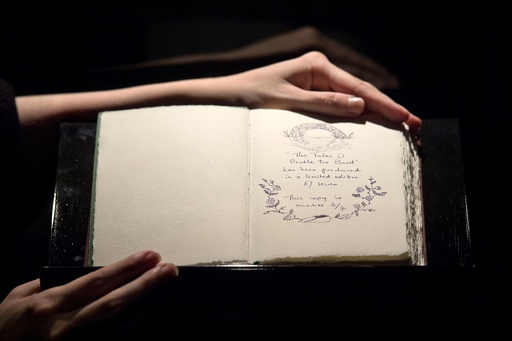 "The Tales of
Beedle the Bard"
has been produced
in a limited edition
of seven
This copy is
number 3/7